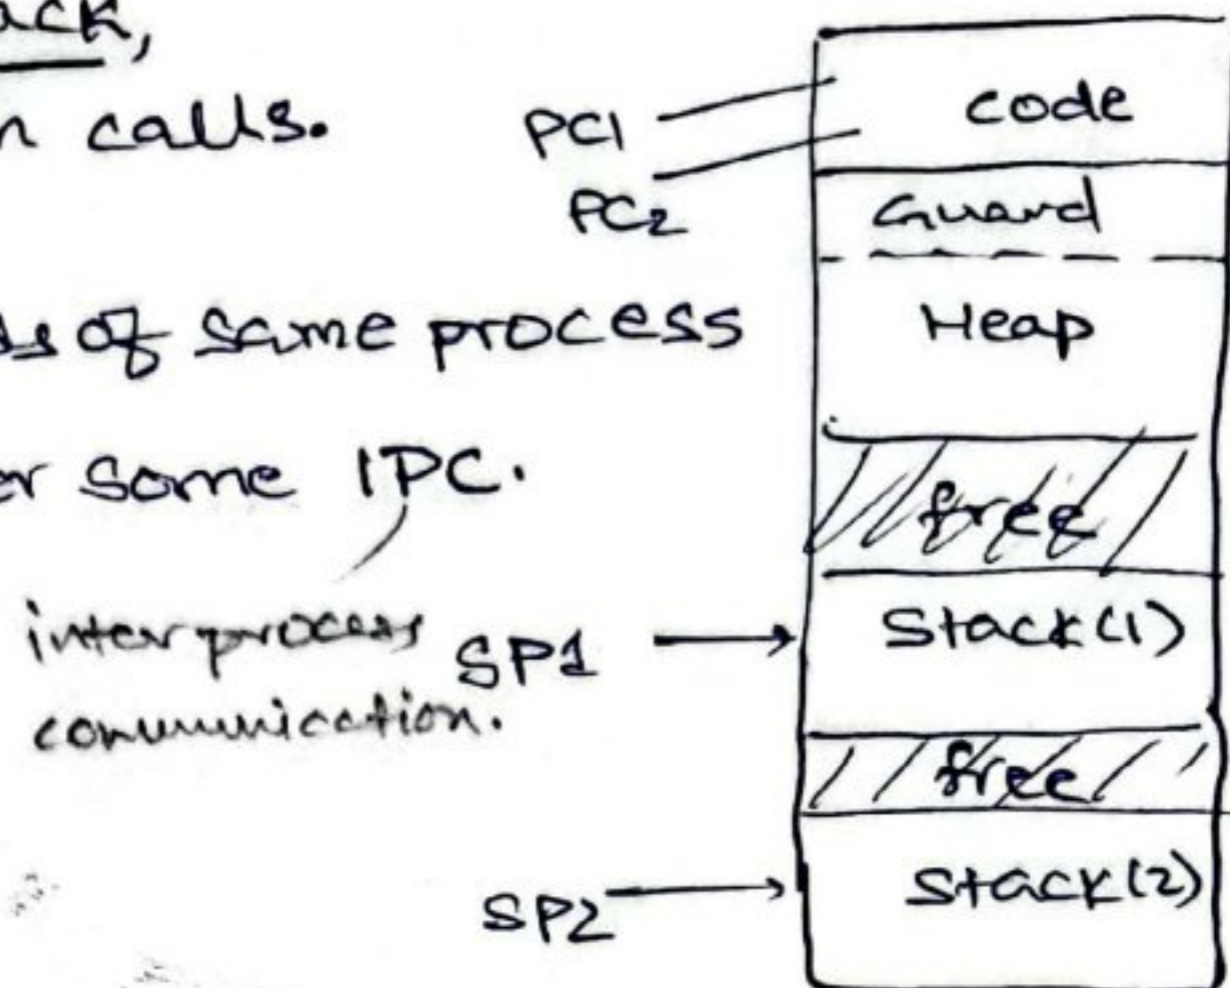 ack,
n calls.
ds of same process
er some IPC.
interprocess
communication.
PC1
PC2
SP1
SP2
code
Guard
Heap
free
Stack(1)
free
Stack(2)